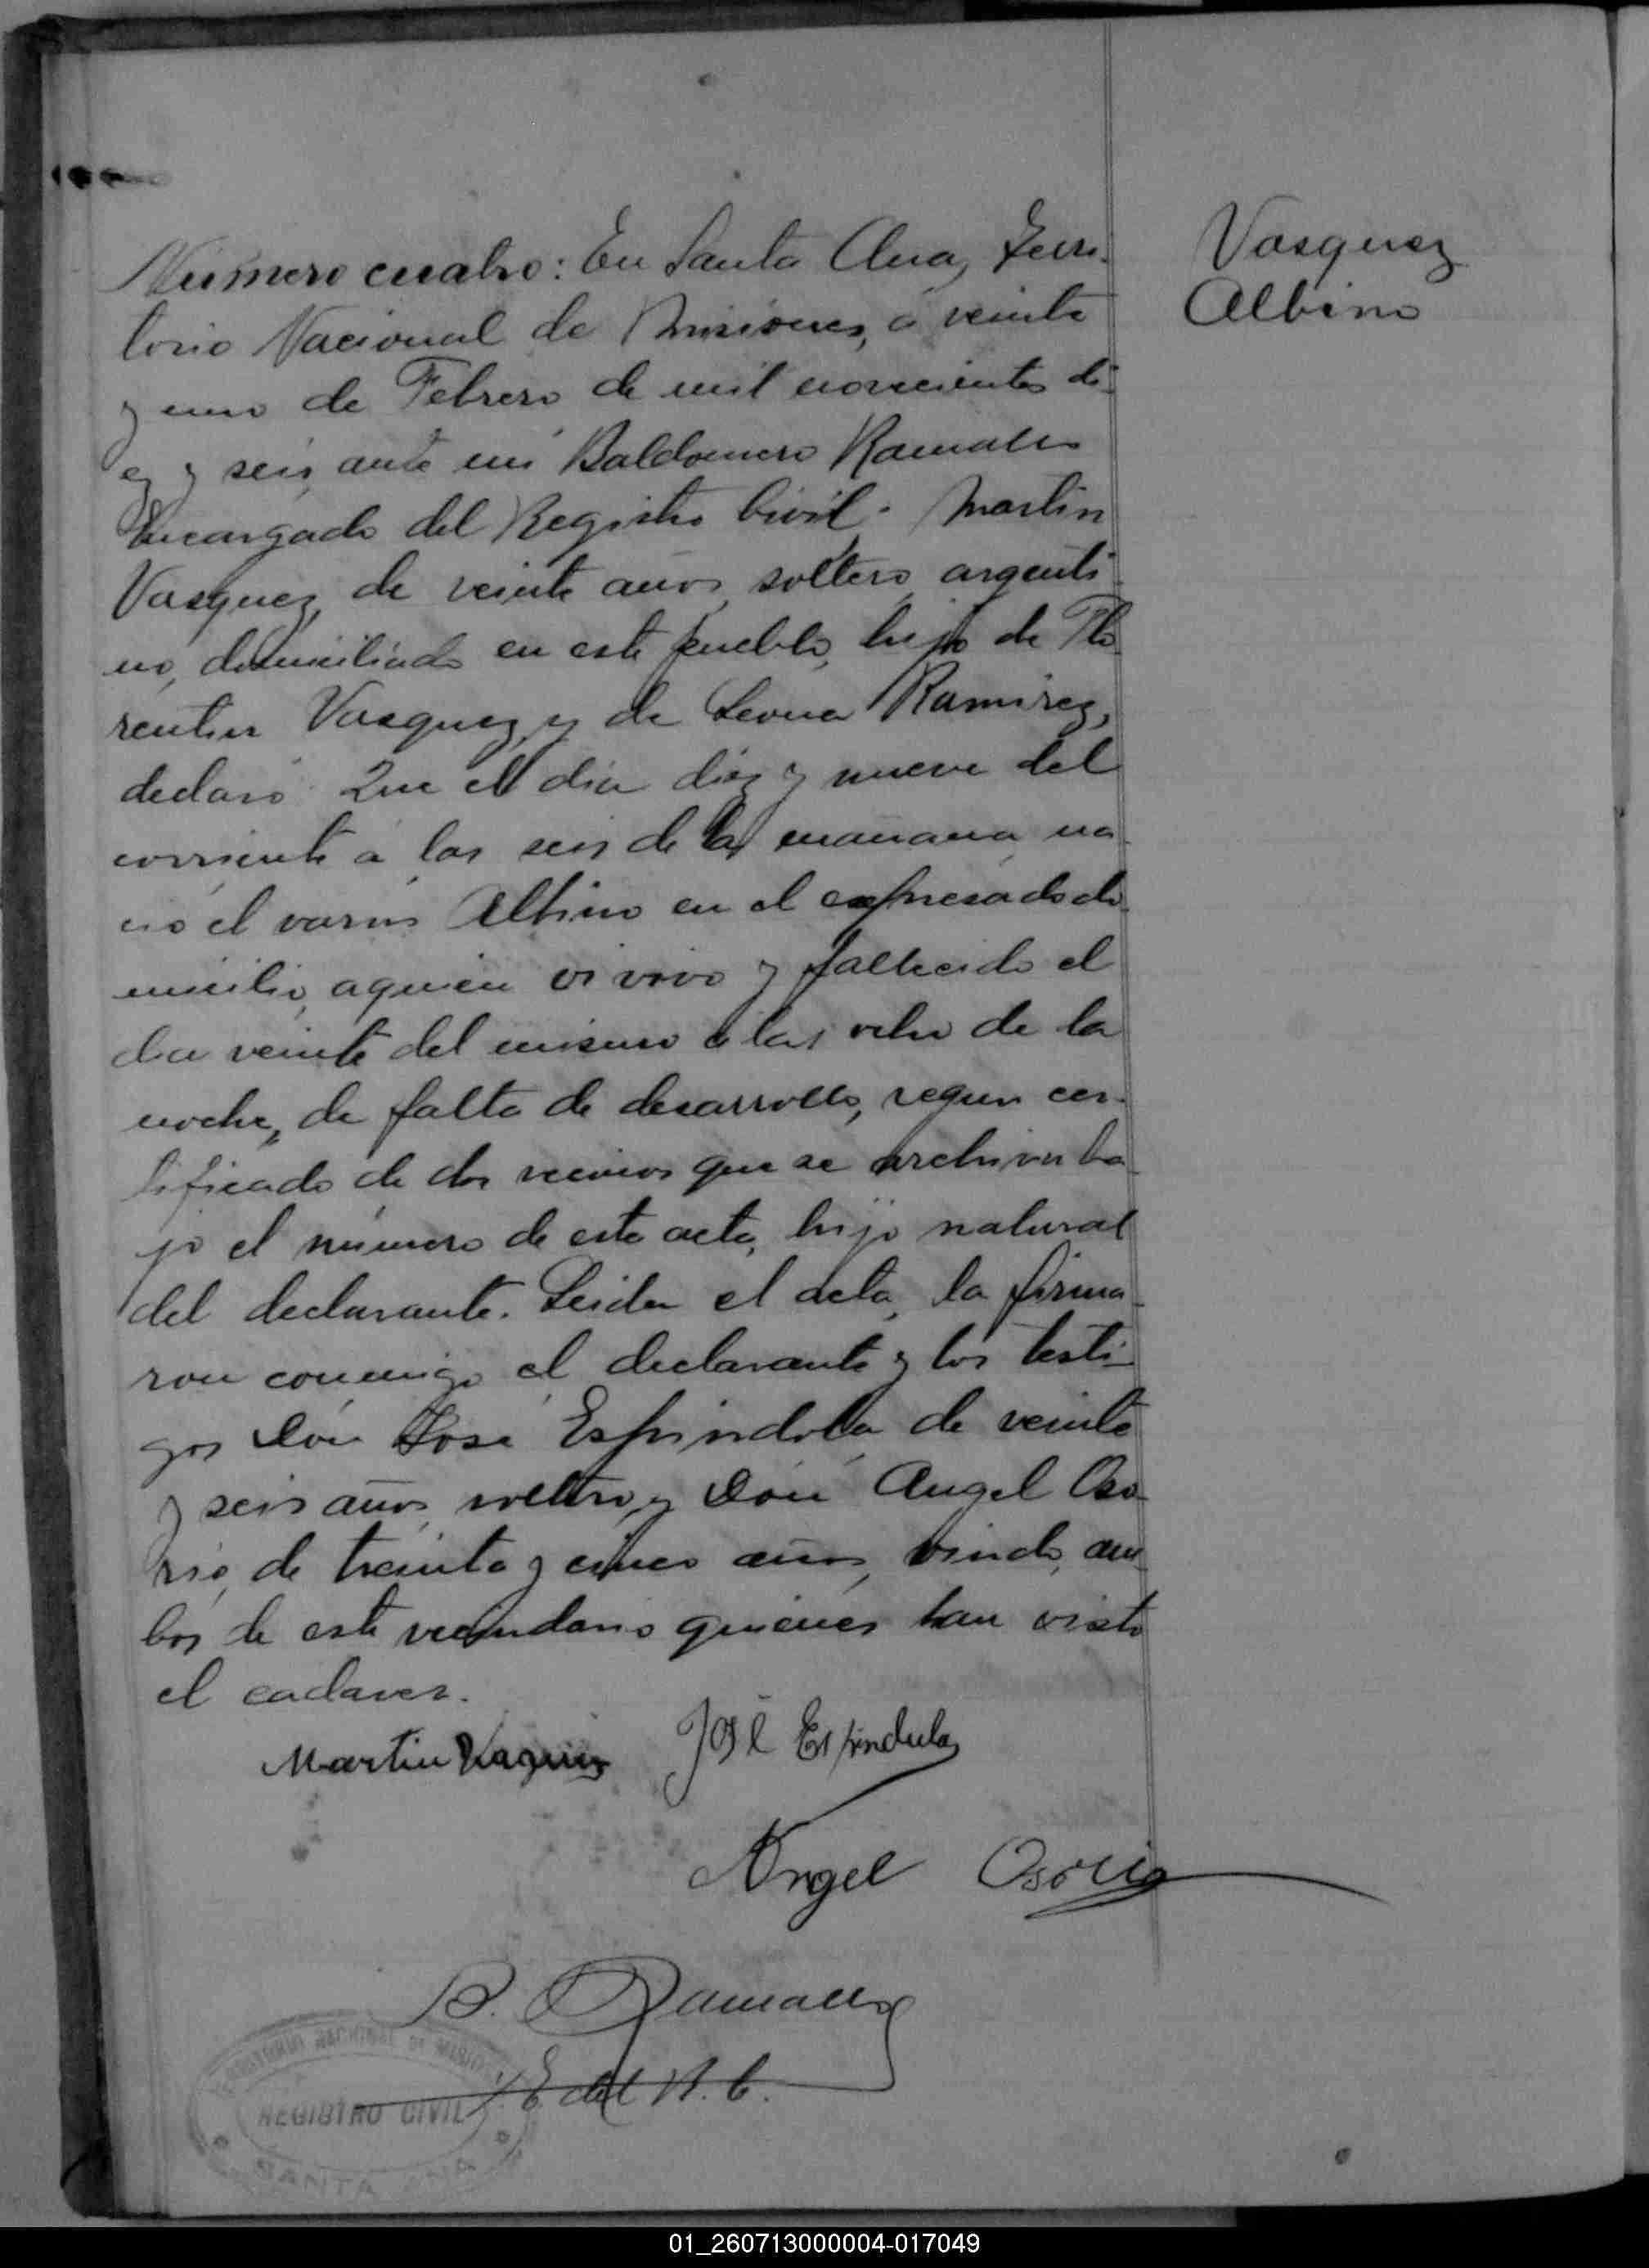 Vasquez
Albino
Número cuatro: En Santa Ana, Terri-
torio Nacional de Misiones, á veinte
y uno de Febrero de mil novecientos di-
ez y seis, ante mí Baldomero Ramallo
Encargado del Registro Civil. Martin
Vasquez, de veinte años, soltero, argenti-
no, domiciliado en este pueblo, hijo de Flo-
rentin Vasquez, y de Leona Ramirez,
declaró: Que el dia diez y nueve del
corriente á las seis de la mañana na-
ció el varón Albino en el expresado do-
micilio, aquien vi vivo y fallecido el
dia veinte del mismo á las ocho de la
noche, de falta de desarrollo, segun cer-
tificado de dos vecinos que se archiva ba-
jo el número de esta acta, hijo natural
del declarante. Leida el acta, la firma-
ron conmigo el declarante y los testi-
gos Don José Espindola de veinte
y seis años, soltero, y Don Angel Oso-
rio, de treinta y cinco años, viudo, am-
bos de este vecindario quienes han visto
el cadaver.
Martin Vasquez José Espindula
Angel Osorio
B. Ramallo
E. del R. C.
TERRITORIO NACIONAL DE MISIONES
REGISTRO CIVIL
SANTA ANA
01_260713000004-017049